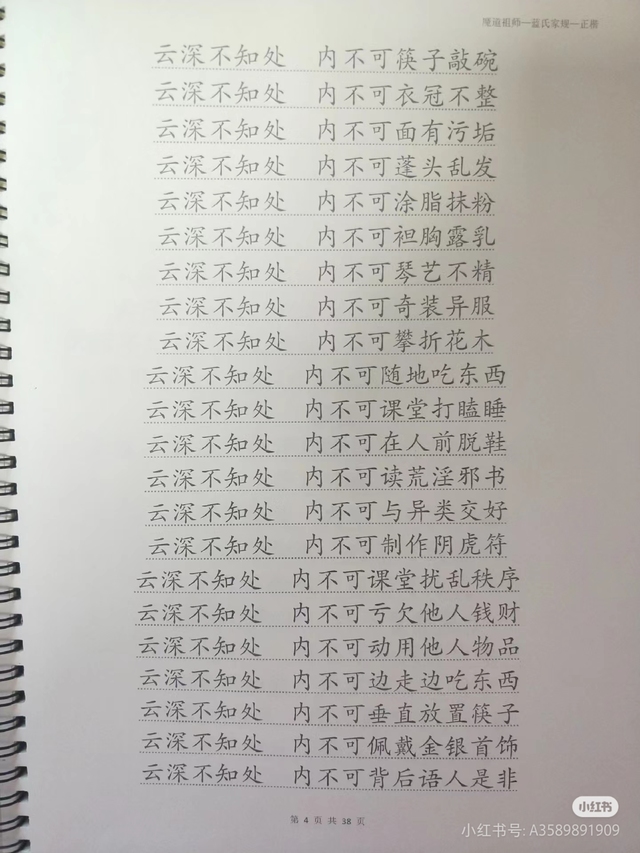 魔道祖师—蓝氏家规—正楷
云深不知处 内不可筷子敲碗
云深不知处 内不可衣冠不整
云深不知处 内不可面有污垢
云深不知处 内不可蓬头乱发
云深不知处 内不可涂脂抹粉
云深不知处 内不可袒胸露乳
云深不知处 内不可琴艺不精
云深不知处 内不可奇装异服
云深不知处 内不可攀折花木
云深不知处 内不可随地吃东西
云深不知处 内不可课堂打瞌睡
云深不知处 内不可在人前脱鞋
云深不知处 内不可读荒淫邪书
云深不知处 内不可与异类交好
云深不知处 内不可制作阴虎符
云深不知处 内不可课堂扰乱秩序
云深不知处 内不可亏欠他人钱财
云深不知处 内不可动用他人物品
云深不知处 内不可边走边吃东西
云深不知处 内不可垂直放置筷子
云深不知处 内不可佩戴金银首饰
云深不知处 内不可背后语人是非
第 4 页 共 38 页
小红书
小红书号: A3589891909